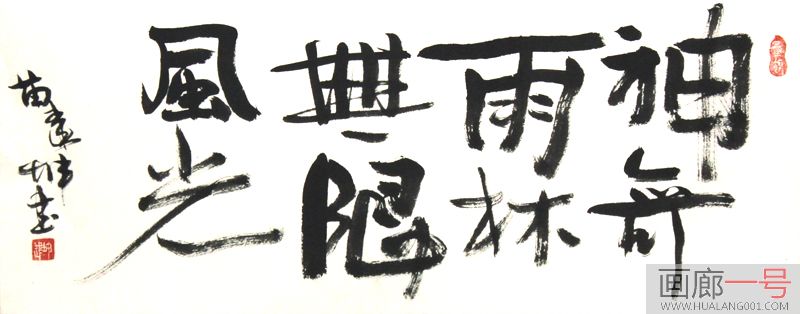 神奇
雨林
無限
風光
苗
画廊一号
WWW.HUALANG001.COM